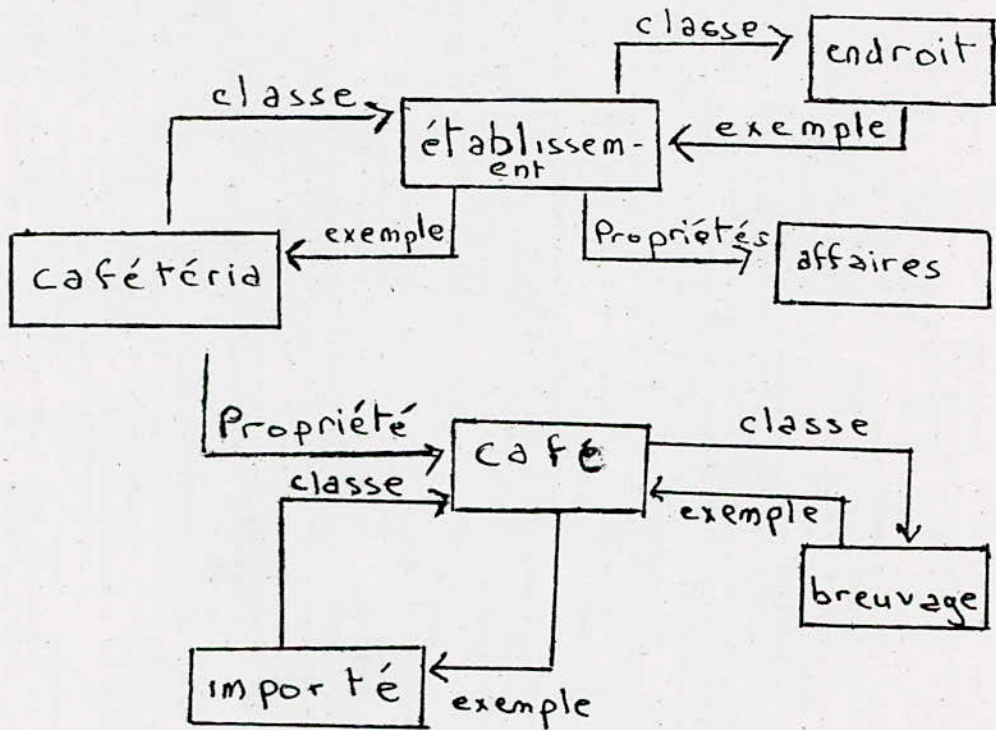 classe
endroit
classe
établissem-
ent
exemple
exemple
Propriétés
cafétéria
affaires
Propriété
café
classe
classe
exemple
breuvage
importé
exemple